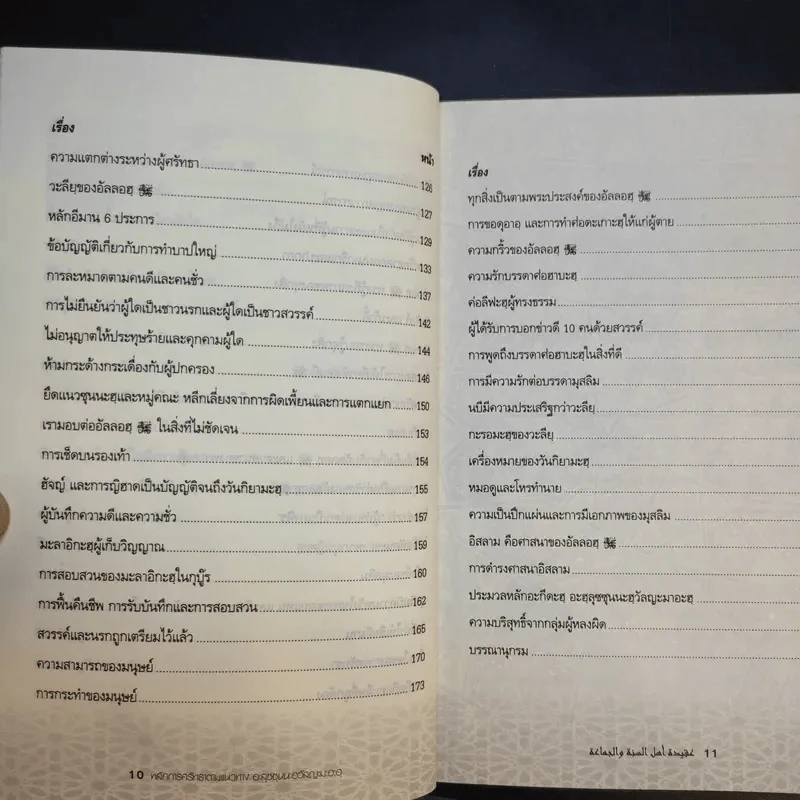 เรื่อง
หน้า
ความแตกต่างระหว่างผู้ศรัทธา 126
วะลียฺของอัลลอฮฺ ﷻ 127
หลักอีมาน 6 ประการ 129
ข้อบัญญัติเกี่ยวกับการทำบาปใหญ่ 133
การละหมาดตามคนดีและคนชั่ว 137
การไม่ยืนยันว่าผู้ใดเป็นชาวนรกและผู้ใดเป็นชาวสวรรค์ 142
ไม่อนุญาตให้ประทุษร้ายและคุกคามผู้ใด 144
ห้ามกระด้างกระเดื่องกับผู้ปกครอง 146
ยึดแนวซุนนะฮฺและหมู่คณะ หลีกเลี่ยงจากการผิดเพี้ยนและการแตกแยก 150
เรามอบต่ออัลลอฮฺ ﷻ ในสิ่งที่ไม่ชัดเจน 153
การเช็ดบนรองเท้า 154
ฮัจญ์ และการญิฮาดเป็นบัญญัติจนถึงวันกิยามะฮฺ 155
ผู้บันทึกความดีและความชั่ว 157
มะลาอิกะฮฺผู้เก็บวิญญาณ 159
การสอบสวนของมะลาอิกะฮฺในกุบู๊ร 160
การฟื้นคืนชีพ การรับบันทึกและการสอบสวน 162
สวรรค์และนรกถูกเตรียมไว้แล้ว 165
ความสามารถของมนุษย์ 170
การกระทำของมนุษย์ 173
10 หลักการศรัทธาตามแนวทาง อะฮฺลุซซุนนะฮฺวัลญะมาอะฮฺ
เรื่อง
ทุกสิ่งเป็นตามพระประสงค์ของอัลลอฮฺ ﷻ
การขอดุอาอฺ และการทำศ่อดะเกาะฮฺให้แก่ผู้ตาย
ความกริ้วของอัลลอฮฺ ﷻ
ความรักบรรดาศ่อฮาบะฮฺ
ค่อลีฟะฮฺผู้ทรงธรรม
ผู้ได้รับการบอกข่าวดี 10 คนด้วยสวรรค์
การพูดถึงบรรดาศ่อฮาบะฮฺในสิ่งที่ดี
การมีความรักต่อบรรดามุสลิม
นบีมีความประเสริฐกว่าวะลียฺ
กะรอมะฮฺของวะลียฺ
เครื่องหมายของวันกิยามะฮฺ
หมอดูและโหรทำนาย
ความเป็นปึกแผ่นและการมีเอกภาพของมุสลิม
อิสลาม คือศาสนาของอัลลอฮฺ ﷻ
การดำรงศาสนาอิสลาม
ประมวลหลักอะกีดะฮฺ อะฮฺลุซซุนนะฮฺวัลญะมาอะฮฺ
ความบริสุทธิ์จากกลุ่มผู้หลงผิด
บรรณานุกรม
عقيدة أهل السنة والجماعة 11